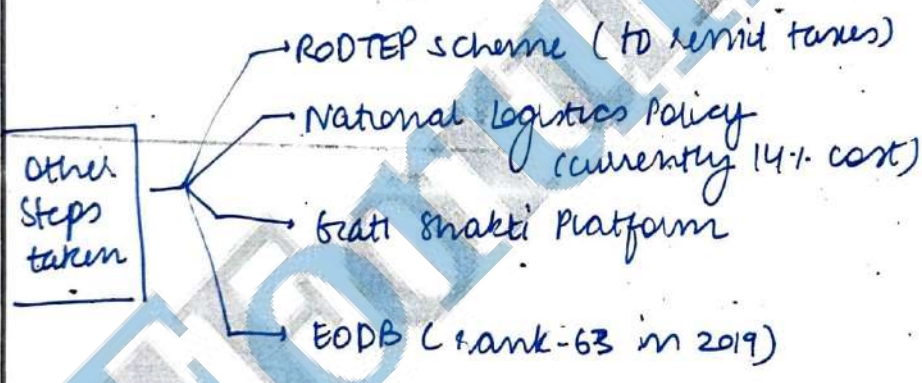 Other
Steps
taken
RODTEP scheme (to remit taxes)
National Logistics Policy
(currently 14% cost)
Gati Shakti Platform
EODB (rank-63 in 2019)